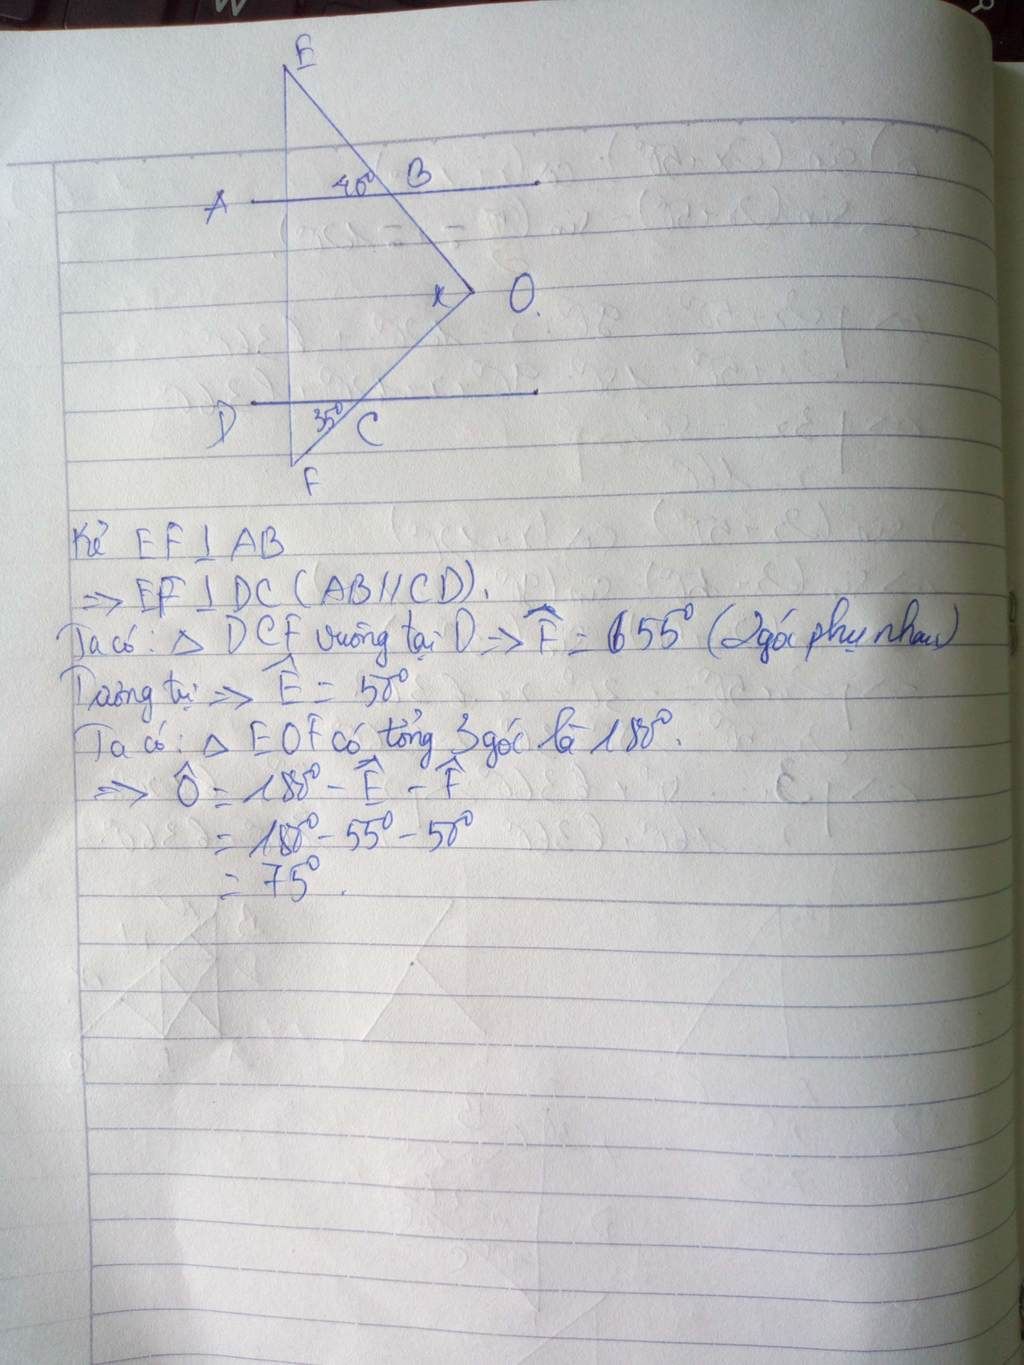 E
40° B
A
x O.
D 35° C
F
Kẻ EF ⊥ AB
=> EF ⊥ DC (AB // CD).
Ta có: △ DCF vuông tại D => F̂ = 55° (2 góc phụ nhau)
Tương tự => Ê = 50°
Ta có: △ EOF có tổng 3 góc là 180°.
=> Ô = 180° - Ê - F̂
= 180° - 55° - 50°
= 75°.